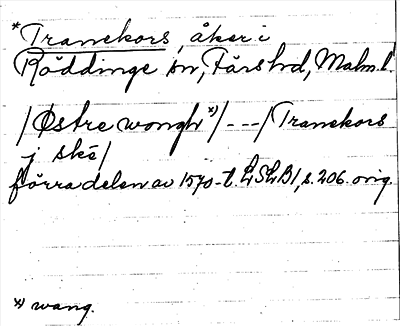 *Tranekors, åker i
Röddinge sn, Färs hd, Malm. l.
/Østre wongh *)/ - - - / Tranekors
j ské/
förra delen av 1570-t. LSLB1, s. 206. orig.
*) wang.